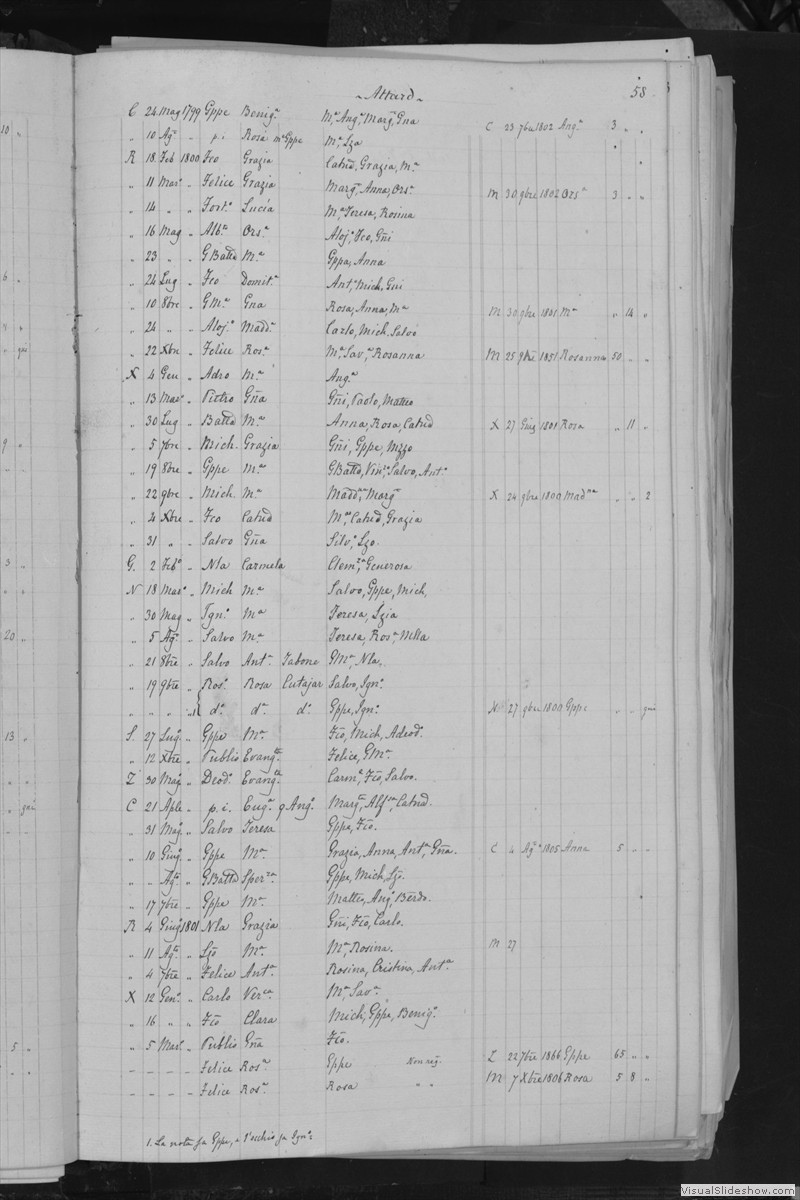 ~ Attard ~ 58
C 24 Mag 1799 Gppe Benig.a M.a Ang.a Marg.a Gna C 23 7bre 1802 Ang.a 3 " "
10 " 10 Ag.o " p.i. Rosa m.e Gppe M.a Lza
R 18 Feb 1800 Fco Grazia Catnd, Grazia, M.a
" 11 Mar.o " Felice Grazia Marg.a Anna, Ors.a M 30 9bre 1802 Ors.a 3 " "
" 14 " " Fort.o Lucia M.a Teresa, Rosina
" 16 Mag " Alb.o Ors.a Aloj.o Fco, Gñi
" 23 " " GBatta M.a Gppa, Anna
6 " 24 Lug " Fco Domit.a Ant.o Mich, Gni
" 10 8bre " GM.a Gna Rosa, Anna, M.a M 30 9bre 1801 M.a " 14 "
" 24 " " Aloj.o Madd.a Carlo, Mich, Salvo
" gni " 22 Xbre " Felice Ros.a M.a Sav.a Rosanna M 25 9bre 1851 Rosanna 50 " "
X 4 Gen " Adro M.a Ang.a
" 13 Mar.o " Pietro Gña Gñi, Paolo, Matteo
" 30 Lug " Batta M.a Anna, Rosa, Catnd X 27 Giug 1801 Rosa " 11 "
9 " 5 7bre " Mich. Grazia Gñi, Gppe, Nzzo
" 19 8bre " Gppe M.a GBatta, Vin.o Salvo, Ant.o
" 22 9bre " Mich. M.a Madd.na Marg.a X 24 9bre 1800 Mad.na " " 2
" 4 Xbre " Fco Catnd M.a Catnd, Grazia
" 31 " " Salvo Gña Silv.o Lzo.
3 " G. 2 Feb.o " Nla Carmela Clem.za Generosa
N 18 Mar.o " Mich M.a Salvo, Gppe, Mich,
" 30 Mag " Ign.o M.a Teresa, Lzia
20 " " 5 Ag.o " Salvo M.a Teresa, Ros.a Mlla
" 21 8bre " Salvo Ant.a Tabone GM.a Nla,
" 19 9bre " Ros.o Rosa Cutajar Salvo, Ign.o
" " " "1 d.o d.a d.o Gppe, Ign.o N 27 9bre 1800 Gppe " " gni
13 " S. 27 Lug.o " Gppe M.a Fco, Mich, Adeod.o
" 12 Xbre " Publio Evang.ta Felice, GM.a
Z 30 Mag " Deod.o Evang.ta Carm.o Fco, Salvo.
" gni C 21 Aple " p.i. Eug.a q Ang.o Marg.ta Alf.sa Catnd.
" 31 Mag " Salvo Teresa Gppe, Fco.
" 10 Giug " Gppe M.a Grazia, Anna, Ant.a Gña. C 4 Ag.o 1805 Anna 5 " "
" " Ag.o " GBatta Sper.za Gppe, Mich, Lzo.
" 17 7bre " Gppe M.a Matteo, Ang.o Berdo.
R 4 Giug 1801 Nla Grazia Gñi, Fco, Carlo.
" 11 Ag.o " Lzo M.a M.a Rosina. M 27
" 4 7bre " Felice Ant.a Rosina, Cristina, Ant.a
X 12 Gen.o " Carlo Ver.ca M.a Sav.a
" 16 " " Fco Clara Mich, Gppe, Benig.o
5 " " 5 Mar.o " Publio Gña Fco.
– – – – Felice Ros.a Gppe Non reg. Z 22 7bre 1866 Gppe 65 " "
– – – – Felice Ros.a Rosa " " M 7 Xbre 1806 Rosa 5 8 "
VisualSlideshow.com